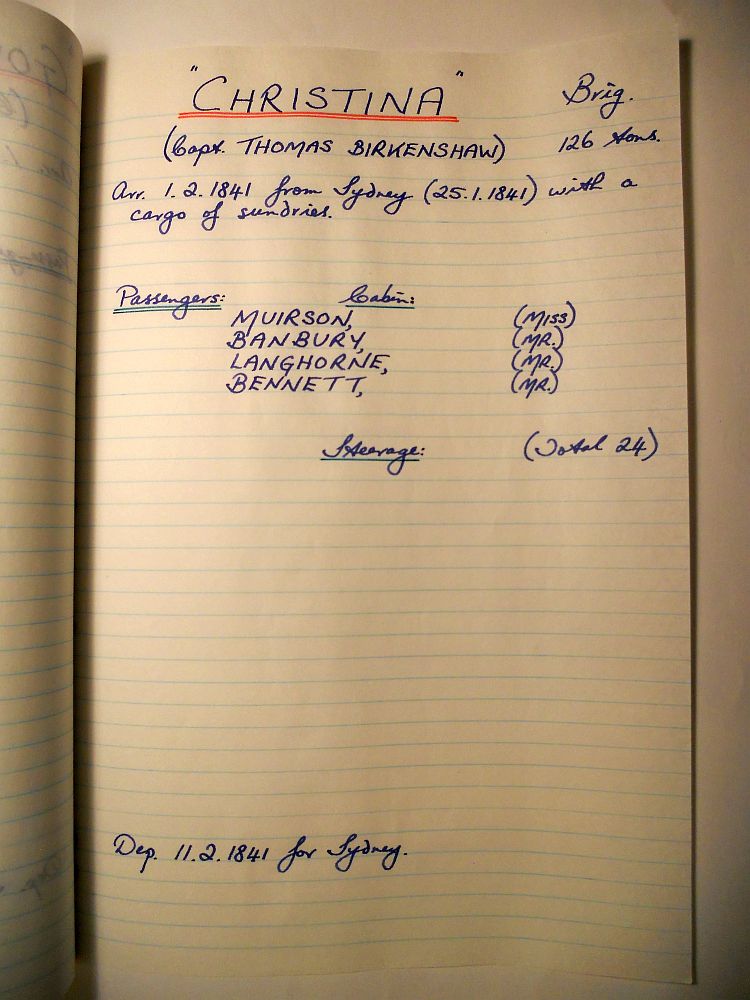 "CHRISTINA" Brig.
(Capt. THOMAS BIRKENSHAW) 126 tons.
Arr. 1.2.1841 from Sydney (25.1.1841) with a
cargo of sundries.
Passengers: Cabin:
MUIRSON, (MISS)
BANBURY, (MR.)
LANGHORNE, (MR.)
BENNETT, (MR.)
Steerage: (Total 24)
Dep. 11.2.1841 for Sydney.